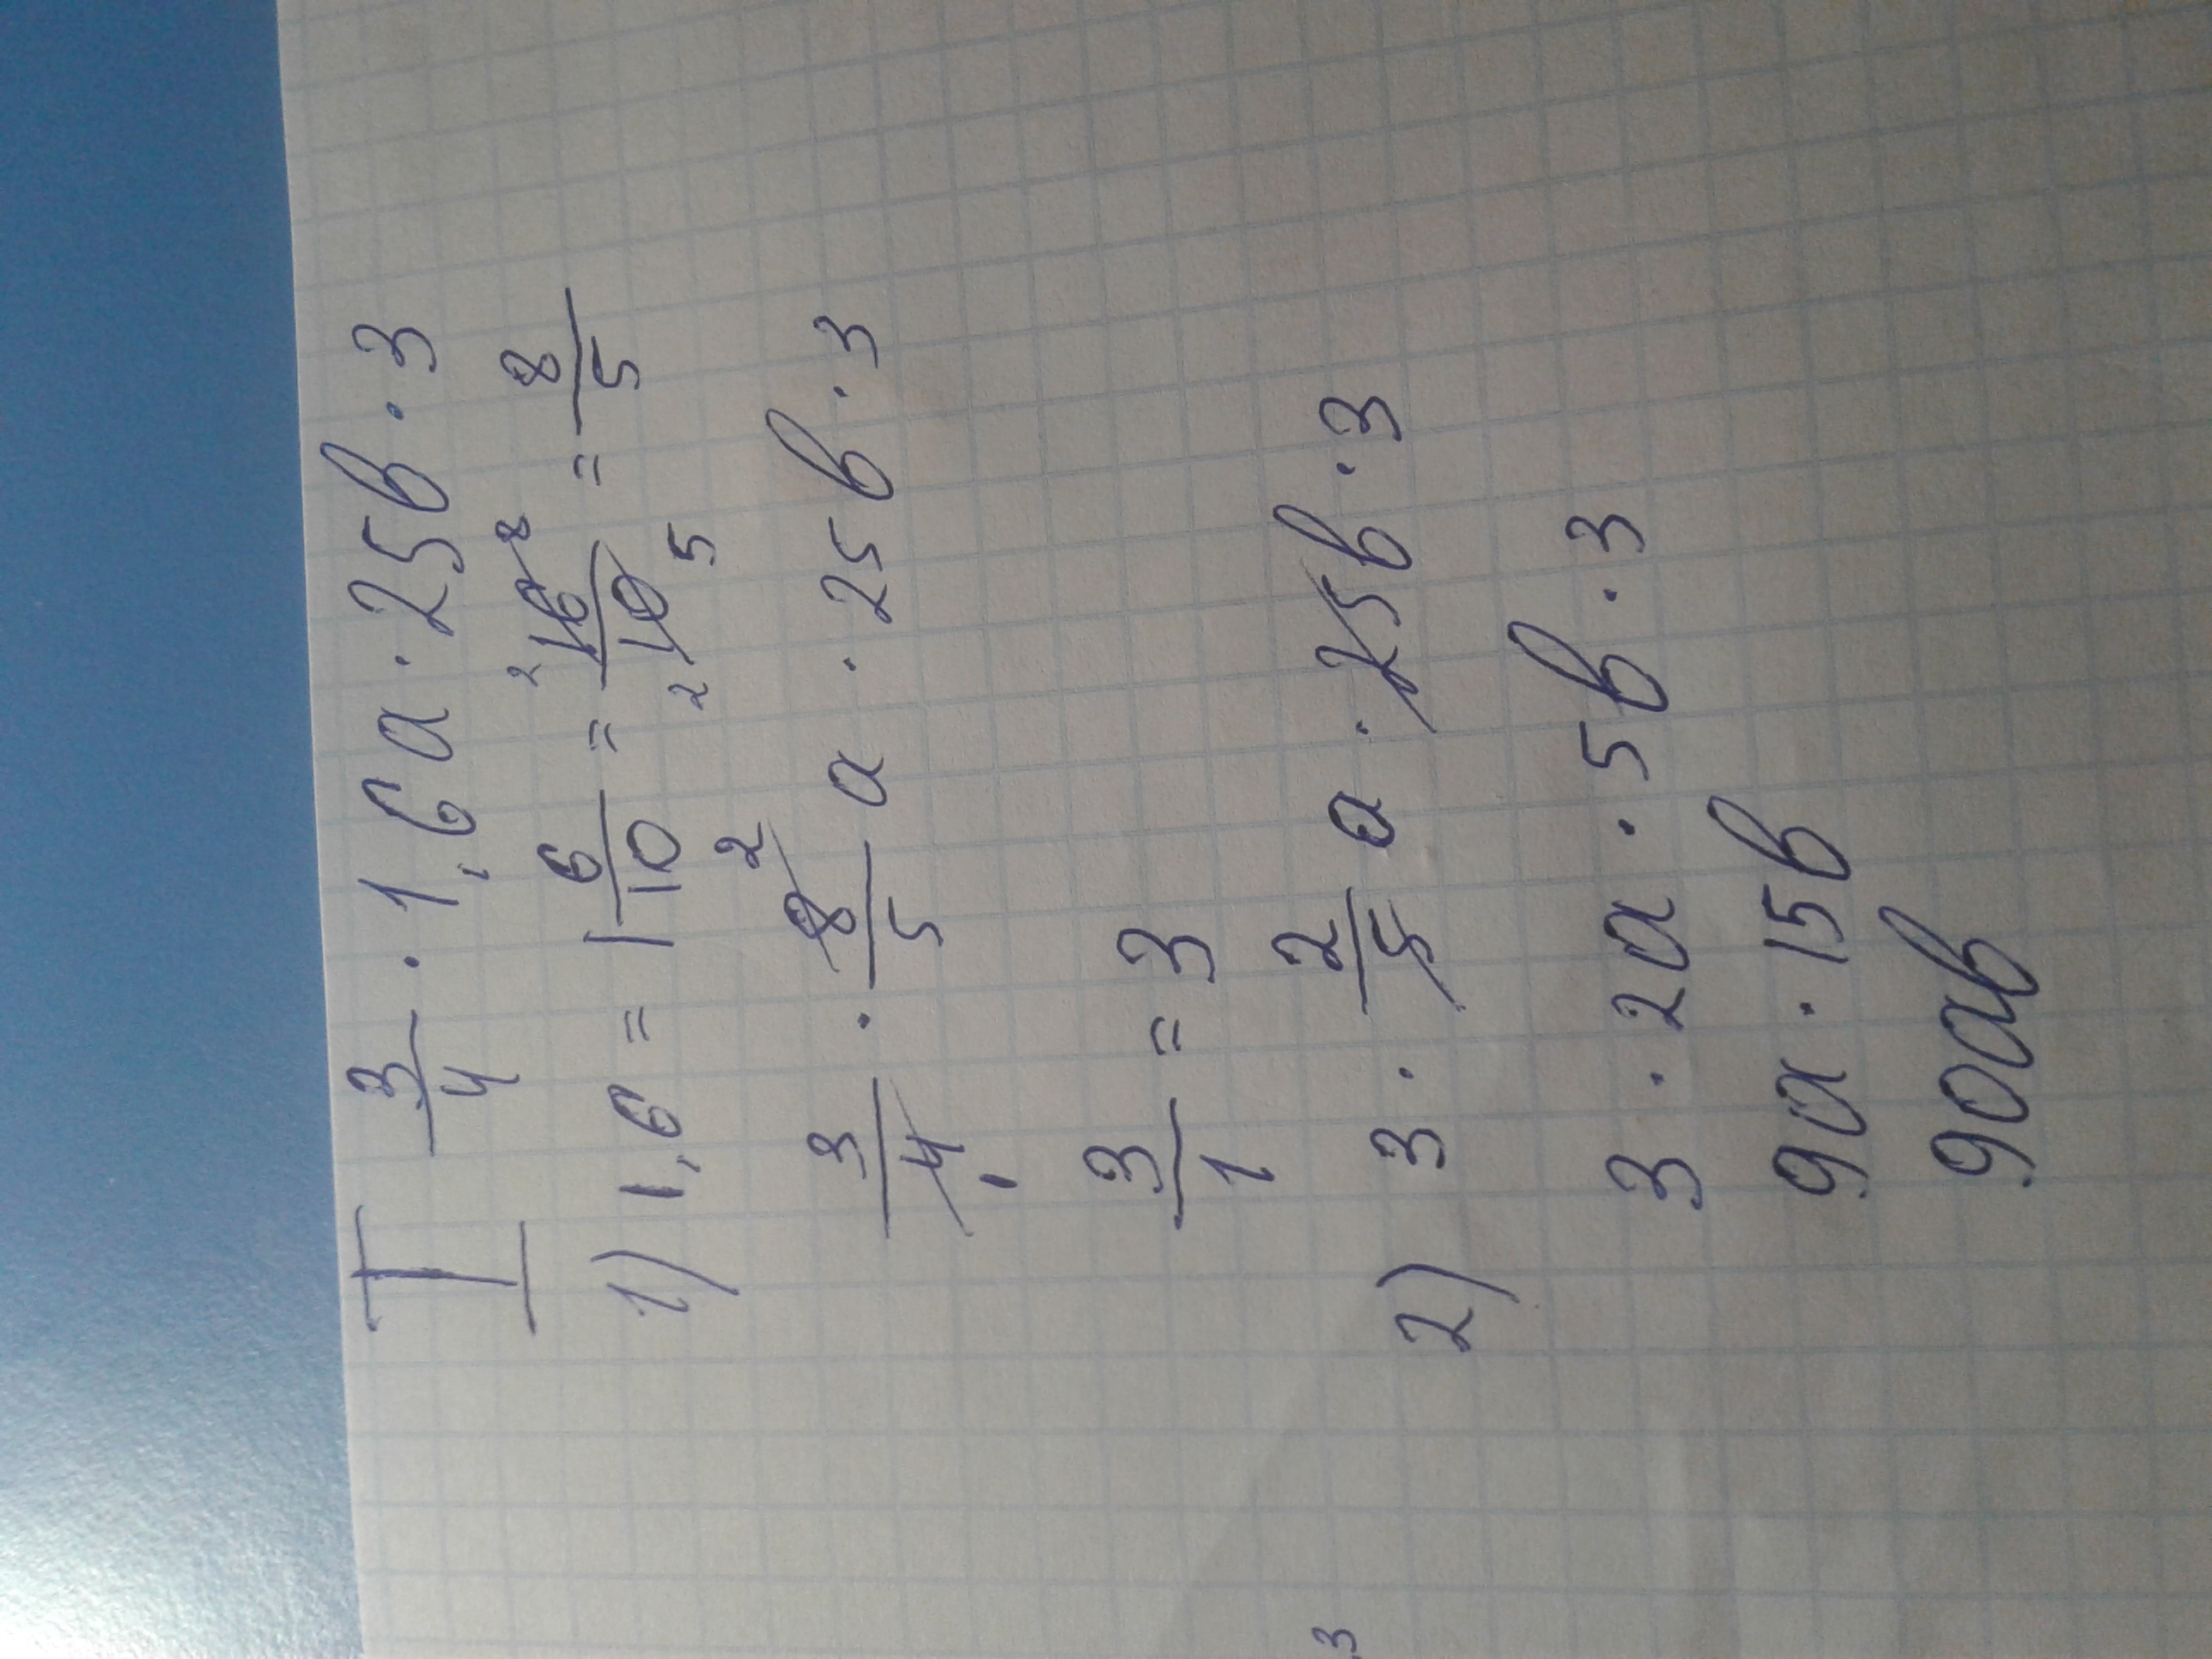 I 3/4 · 1,6a · 25b · 3
1) 1,6 = 1 6/10 = 2 16 8 / 2 10 5 = 8/5
3/4 1 · 8 2/5 a · 25b · 3
3/1 = 3
2) 3 · 2/5 a · 25b · 3
3 · 2a · 5b · 3
9a · 15b
90ab
3